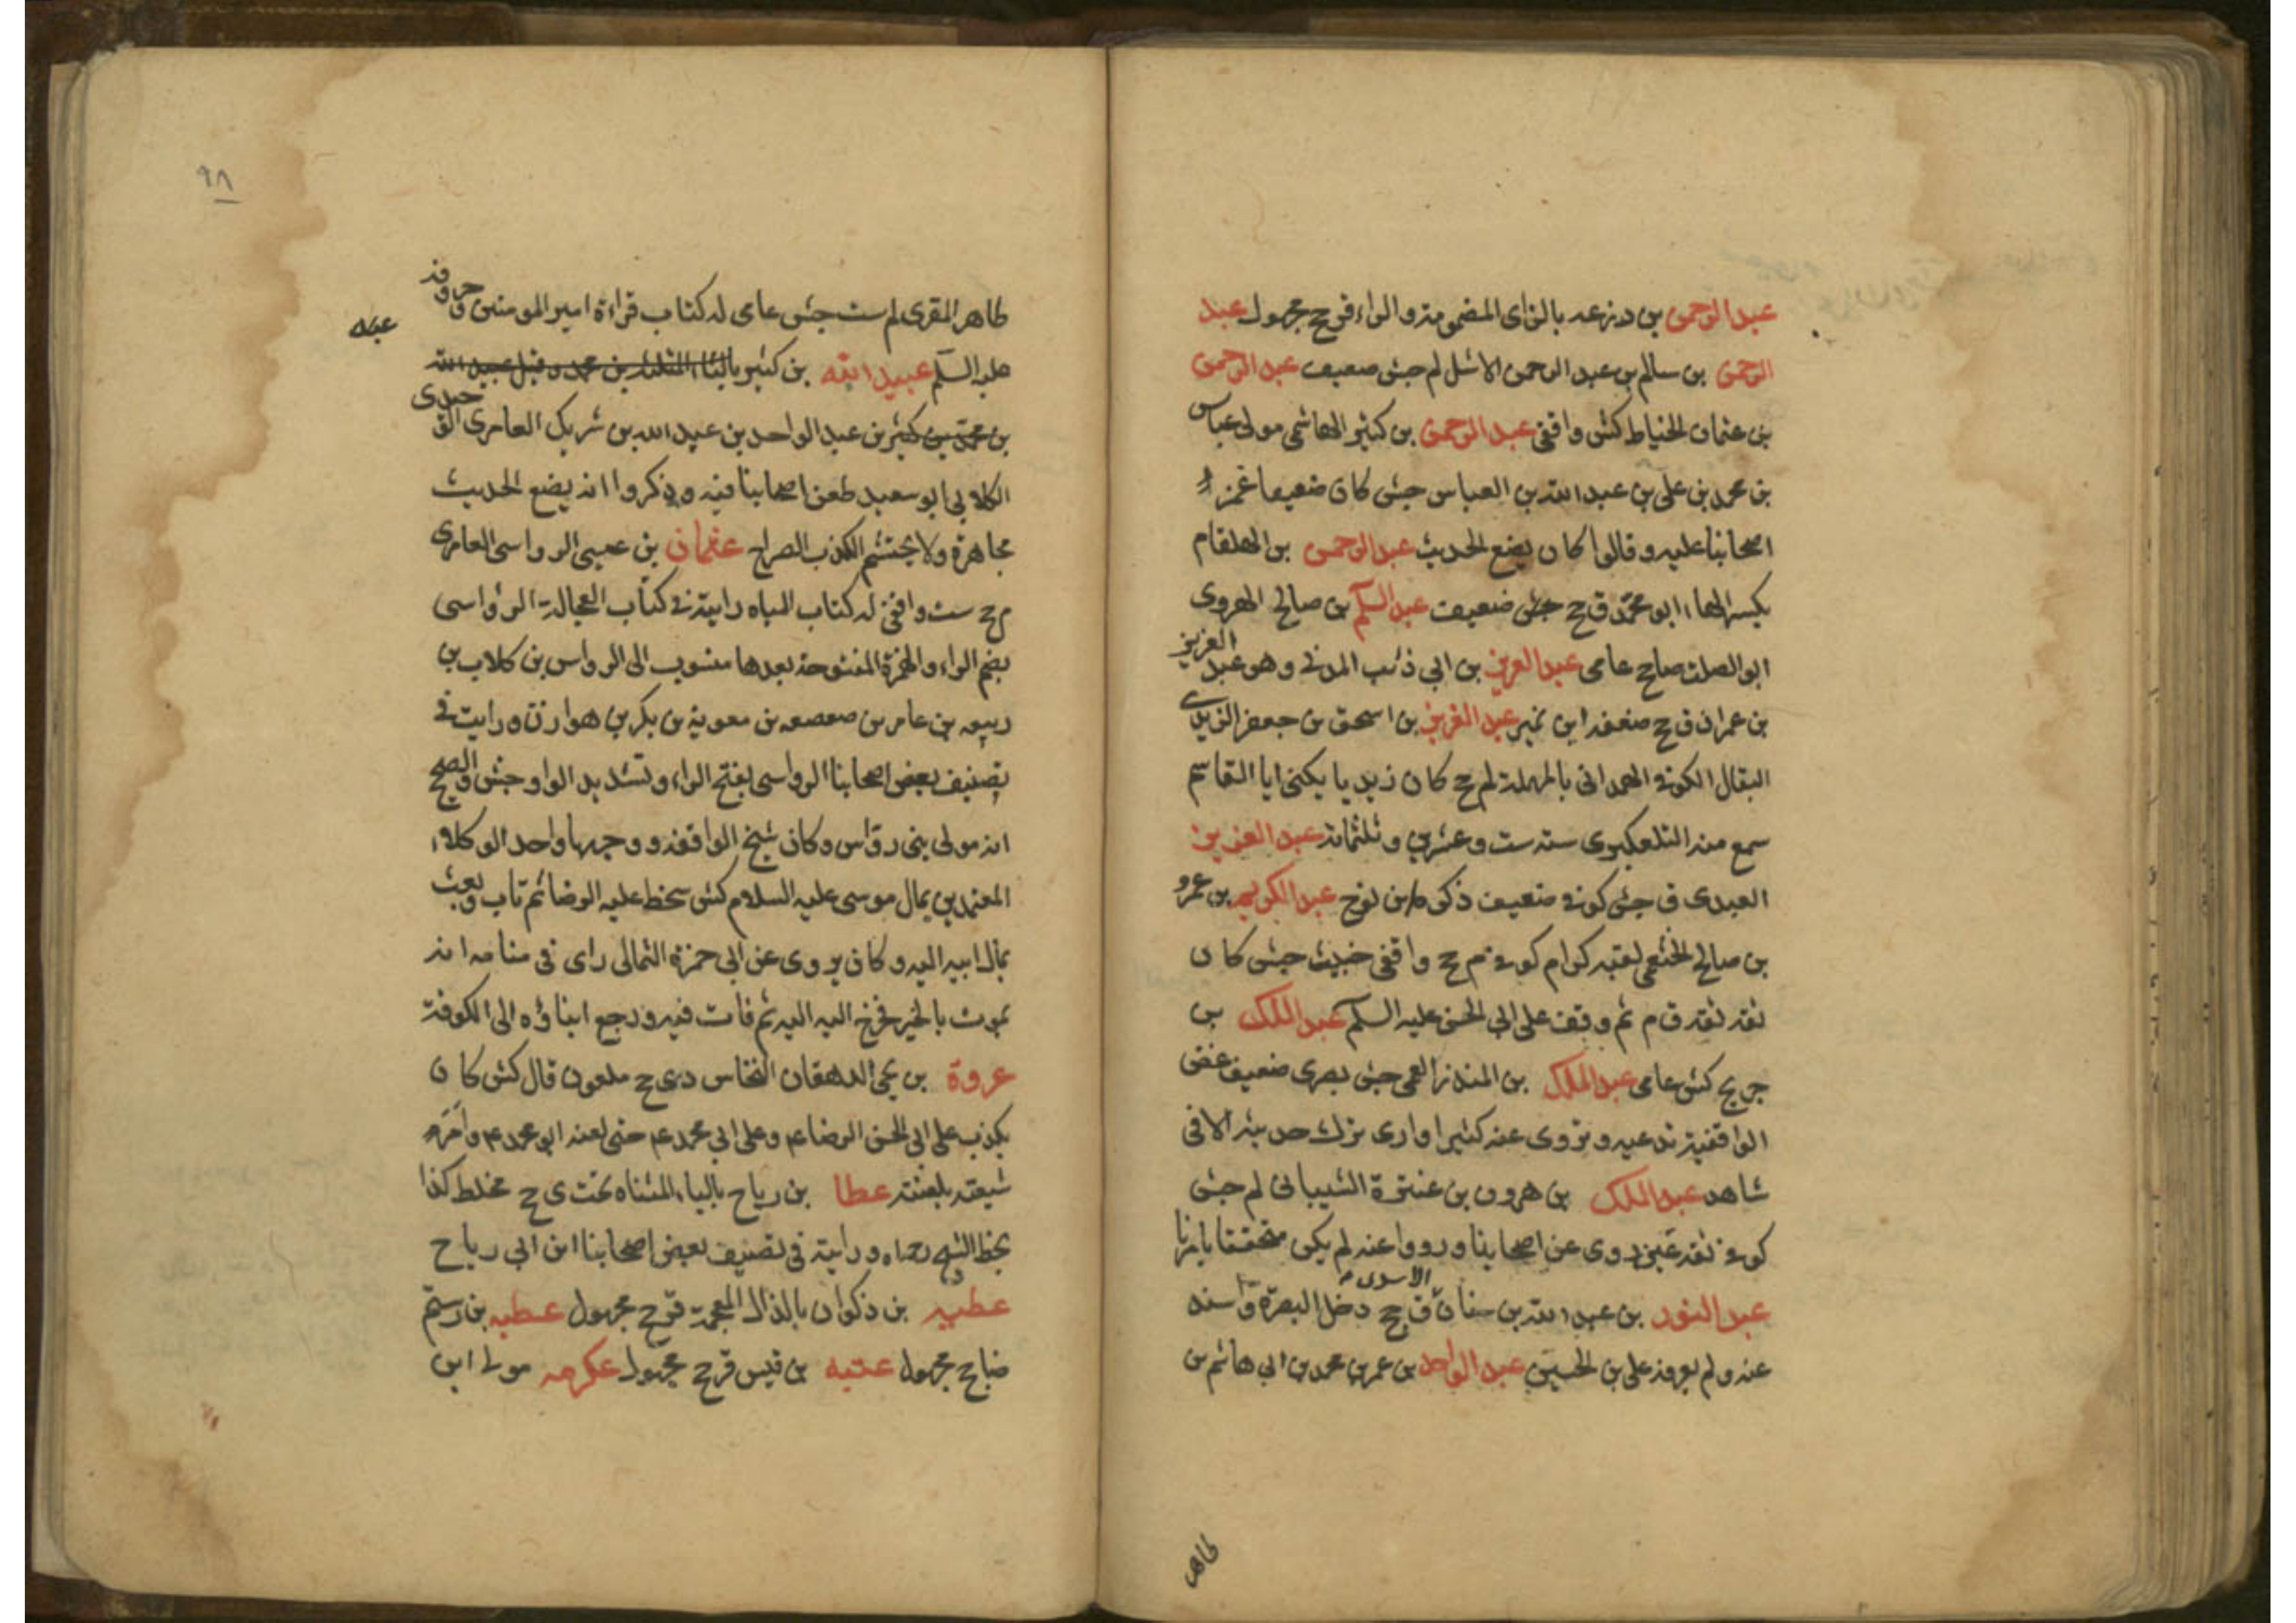 عبد الرحمن بن دزعه بالزاى المضمومة والراء قرجح مجهول عبد
الرحمن بن سالم بن عبد الرحمن الاشل لم جش ضعيف عبد الرحمن
بن عثمان الحناط كش واقفى عبد الرحمن بن كثير الهاشمى مولى عباس
بن محمد بن على بن عبد الله بن العباس جش كان ضعيفا غمز
اصحابنا عليه وقالوا كان يضع الحديث عبد الرحمن بن الهلقام
بكسر الهاء ابو محمد ق جح جش ضعيف عبد السلم بن صالح الهروى
ابو الصلت ضا جح عامى عبد العزيز بن ابى ذئب المدنى وهو عبد العزيز
بن عمران ق جح ضعفه ابن نمير عبد العزيز بن اسحق بن جعفر الزيدى
البقال الكوفى الهمدانى بالمهملة لم جح كان زيديا يكنى ابا القاسم
سمع منه التلعكبرى سنة ست وعشرين وثلثمائة عبد العزيز
العبدى ق جش كوفى ضعيف ذكره ابن نوح عبد الكريم بن عمرو
بن صالح الخثعمى لقبه كرام كوفى م جح واقفى خبيث جش كان
ثقه ثقه ق م ثم وقف على ابى الحسن عليه السلم عبد الملك بن
جريج كش عامى عبد الملك بن المنذر العمى جش بصرى ضعيف غض
الواقفية تدعيه وتروى عنه كثيرا وارى ترك حديثه الا فى
شاهد عبد الملك بن هرون بن عنترة الشيبانى لم جش
كوفى ثقه عين روى عن اصحابنا ورووا عنه لم يكن متحققا بامرنا
عبد النور بن عبد الله بن سنان الاسدى ق جح دخل البصرة واسند
عنه ولم يعرفه على بن الحسين عبد الواحد بن عمر بن محمد بن ابى هاشم بن
طاهر
٩٨
طاهر المقرى لم ست جش عامى له كتاب قراءة امير المومنين وحروفه
عليه السلم عبيد الله بن كثير بالثاء المثلثة بن محمد وقيل عبيد الله
بن محمد بن كثير بن عبد الواحد بن عبد الله بن شريك العامرى
الكلابى ابو سعيد طعن اصحابنا فيه وذكروا انه يضع الحديث
مجاهرة ولا يحتشم الكذب الصراح عثمان بن عيسى الرواسى العامرى
م جح ست واقفى له كتاب المياه رايته فى كتاب الرؤاسى
بضم الراء والهمزة المفتوحة بعدها منسوب الى الرواس بن كلاب بن
ربيعه بن عامر بن صعصعه بن معوية بن بكر بن هوازن ورايت فى
تصنيف بعض اصحابنا الرواسى بفتح الراء وتشديد الواو جش والصحيح
انه مولى بنى رواس وكان شيخ الواقفه ووجهها واحد الوكلاء
المعتمدين بمال موسى عليه السلام كش سخط عليه الرضا ثم تاب وبعث
بمال ابيه اليه وكان يروى عن ابى حمزة الثمالى راى فى منامه انه
يموت بالحير فخرج اليه ثم فات فيه ورجع ابناؤه الى الكوفة
عروة بن يحيى الدهقان النخاس دى جح ملعون قال كش كان
يكذب على ابى الحسن الرضا ع وعلى ابى محمد ع حتى لعنه ابو محمد ع وامر
شيعته بلعنته عطا بن رياح بالياء المثناة تحت ى جح مخلط كذا
بخط الشيخ رحمه الله ورايته فى تصنيف بعض اصحابنا ابن ابى رباح
عطيه بن ذكوان بالذال المعجمة ق جح مجهول عطيه بن رستم
ضا جح مجهول عتبه بن قيس قر جح مجهول عكرمه مولى ابن